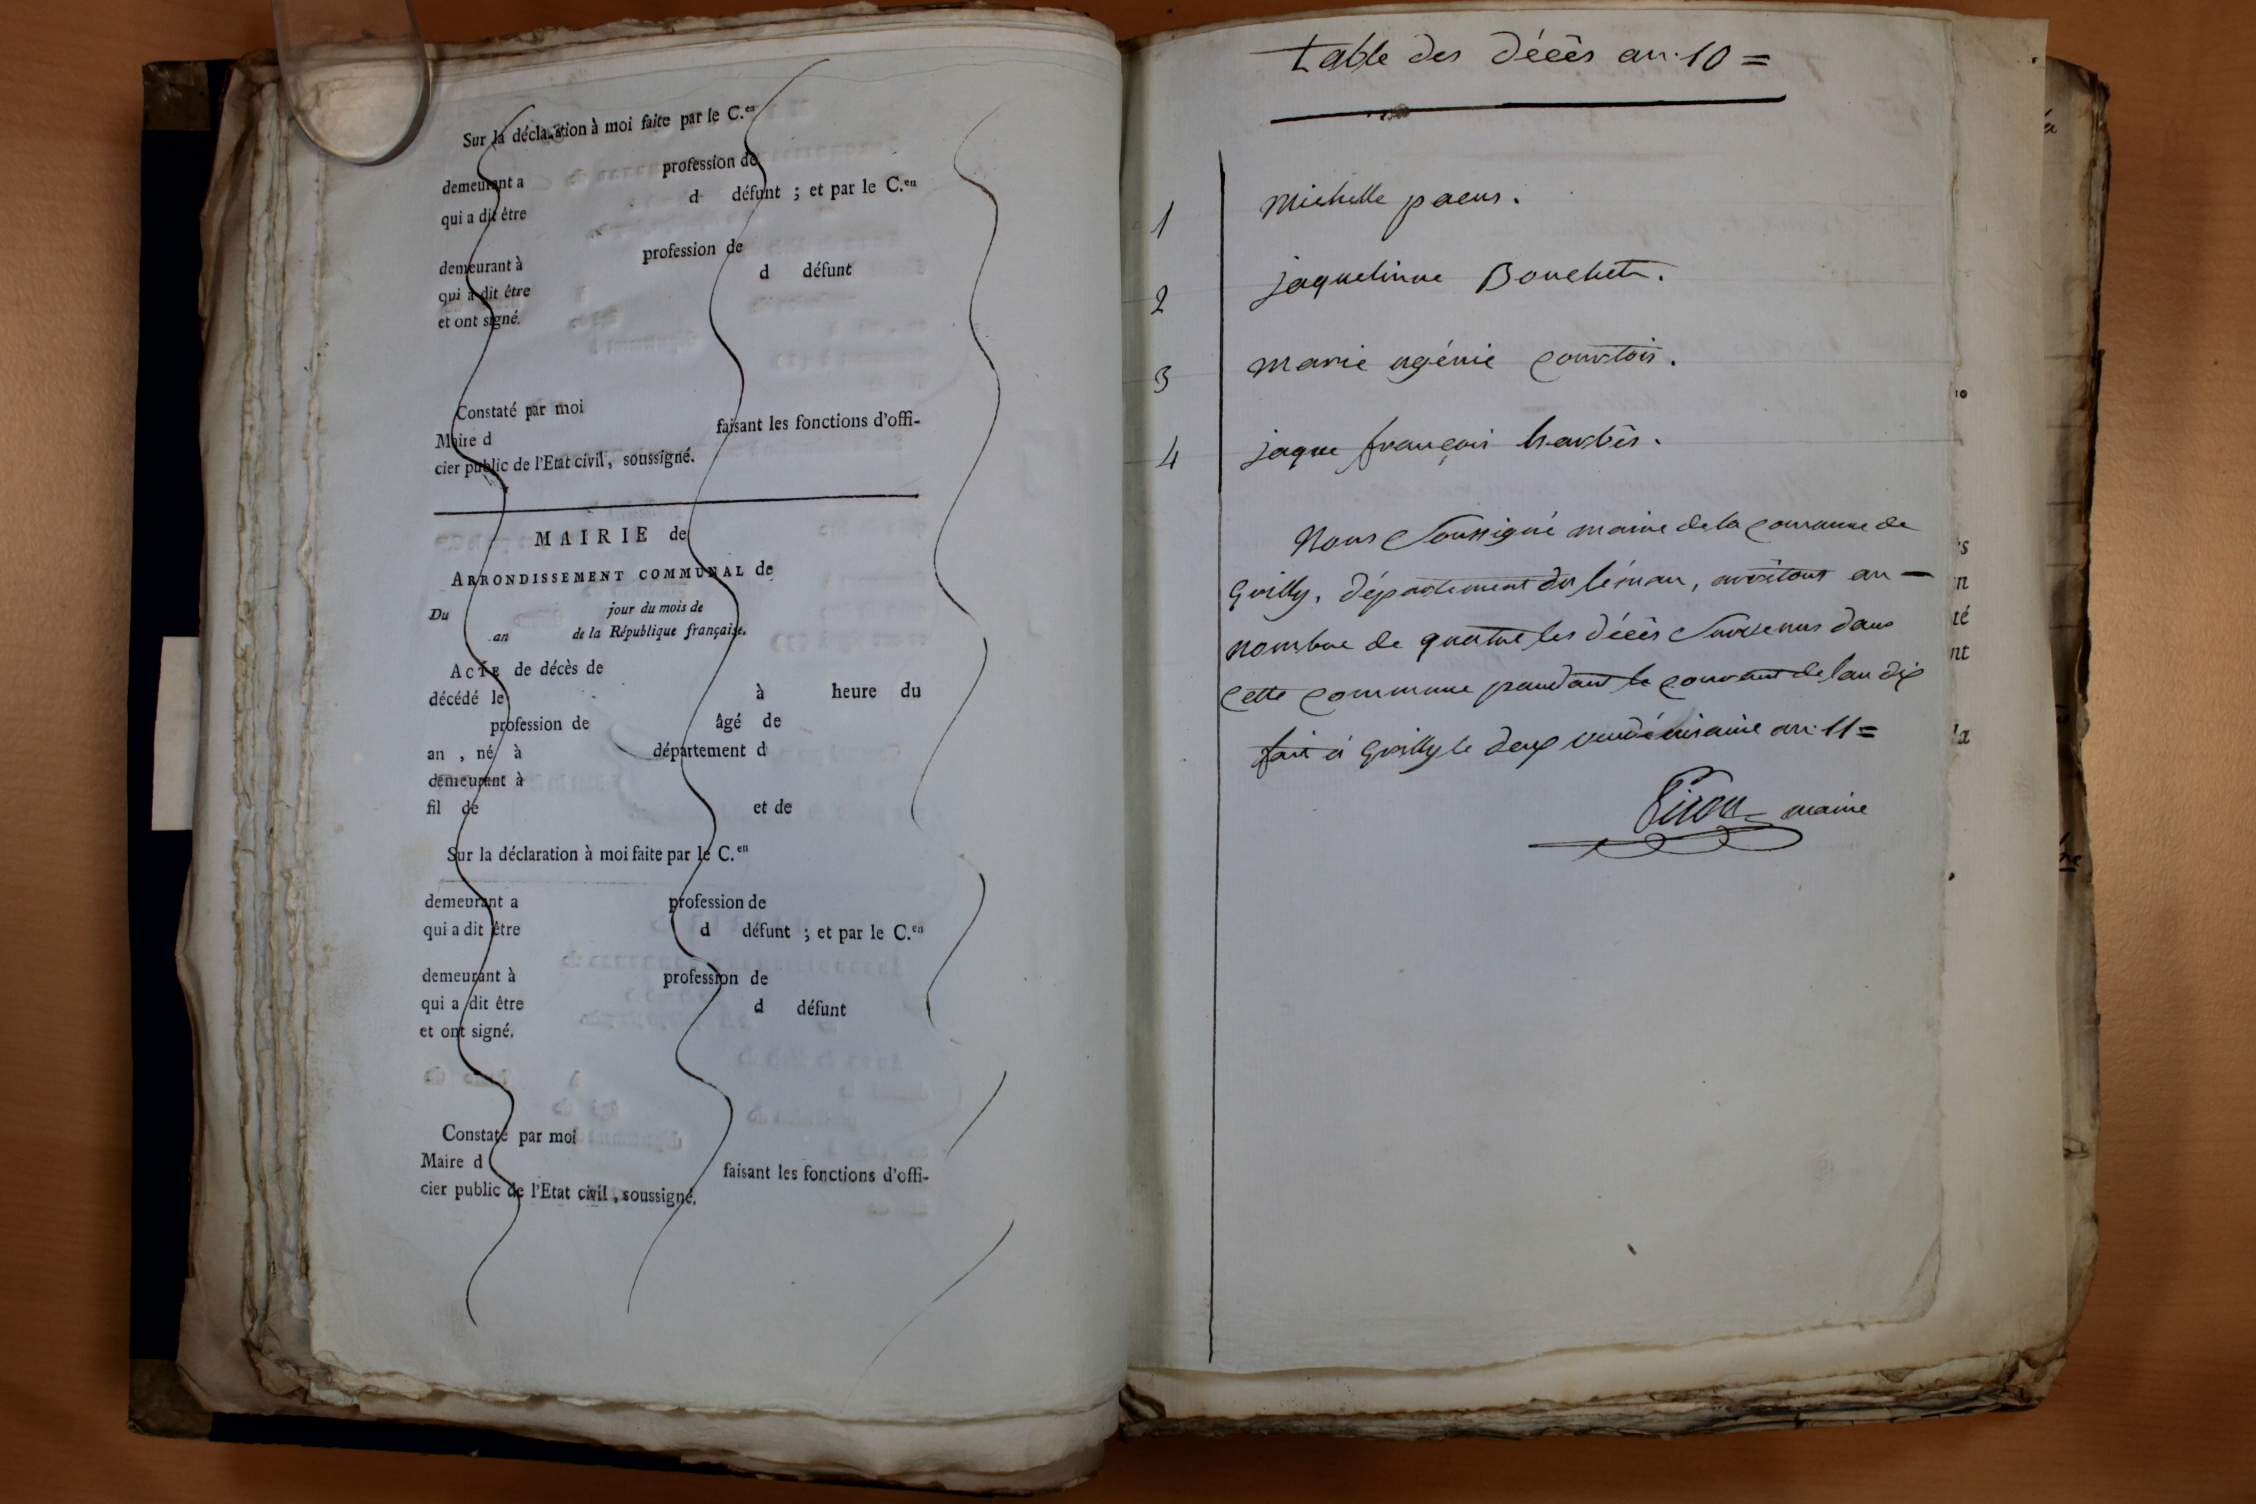 Sur la déclaration à moi faite par le C.en
profession de
demeurant a
d défunt ; et par le C.en
qui a dit être
profession de
demeurant à
d défunt
qui a dit être
et ont signé.
Constaté par moi
Maire d faisant les fonctions d'offi-
cier public de l'Etat civil, soussigné.
MAIRIE de
ARRONDISSEMENT COMMUNAL de
Du jour du mois de
an de la République française.
ACTE de décès de
décédé le à heure du
profession de âgé de
an , né à département d
demeurant à
fil de et de
Sur la déclaration à moi faite par le C.en
demeurant a profession de
qui a dit être d défunt ; et par le C.en
demeurant à profession de
qui a dit être d défunt
et ont signé.
Constaté par moi
Maire d faisant les fonctions d'offi-
cier public de l'Etat civil, soussigné.
table des décès an 10 =
1 Michelle
2 jaquelinne Bouchet.
3 marie ugénie courtois.
4 jaque françois
Nous soussigné maire de la commune de
département du léman, arrêtons au
nombre de quatre les décès survenus dans
cette commune pandant le courant de lan dix
fait à le deux vendémiaire an 11 =
maire